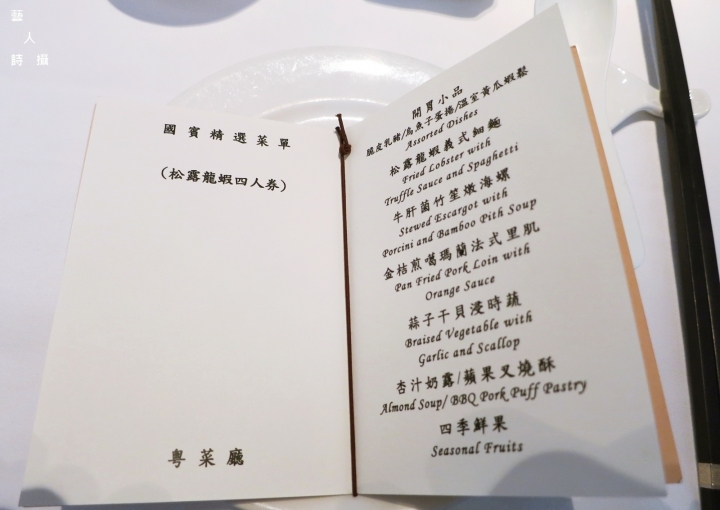 藝人詩攝
國賓精選菜單
(松露龍蝦四人券)
粵菜廳
開胃小品
脆皮乳豬/烏魚子蛋捲/溫室黃瓜蝦鬆
Assorted Dishes
松露龍蝦義式細麵
Fried Lobster with
Truffle Sauce and Spaghetti
牛肝菌竹笙燉海螺
Stewed Escargot with
Porcini and Bamboo Pith Soup
金桔煎噶瑪蘭法式里肌
Pan Fried Pork Loin with
Orange Sauce
蒜子干貝浸時蔬
Braised Vegetable with
Garlic and Scallop
杏汁奶露/蘋果叉燒酥
Almond Soup/ BBQ Pork Puff Pastry
四季鮮果
Seasonal Fruits